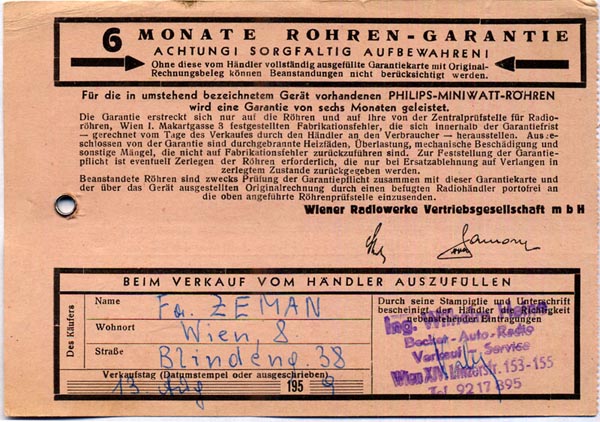 6 MONATE RÖHREN-GARANTIE
ACHTUNG! SORGFÄLTIG AUFBEWAHREN!
Ohne diese vom Händler vollständig ausgefüllte Garantiekarte mit Original-
Rechnungsbeleg können Beanstandungen nicht berücksichtigt werden.
Für die in umstehend bezeichnetem Gerät vorhandenen PHILIPS-MINIWATT-RÖHREN
wird eine Garantie von sechs Monaten geleistet.
Die Garantie erstreckt sich nur auf die Röhren und auf ihre von der Zentralprüfstelle für Radio-
röhren, Wien I. Makartgasse 3 festgestellten Fabrikationsfehler, die sich innerhalb der Garantiefrist
— gerechnet vom Tage des Verkaufes durch den Händler an den Verbraucher — herausstellen. Ausge-
schlossen von der Garantie sind durchgebrannte Heizfäden, Überlastung, mechanische Beschädigung und
sonstige Mängel, die nicht auf Fabrikationsfehler zurückzuführen sind. Zur Feststellung der Garantie-
pflicht ist eventuell Zerlegen der Röhren erforderlich, die nur bei Ersatzablehnung auf Verlangen in
zerlegtem Zustande zurückgegeben werden.
Beanstandete Röhren sind zwecks Prüfung der Garantiepflicht zusammen mit dieser Garantiekarte und
der über das Gerät ausgestellten Originalrechnung durch einen befugten Radiohändler portofrei an
die oben angeführte Röhrenprüfstelle einzusenden.
Wiener Radiowerke Vertriebsgesellschaft m b H
BEIM VERKAUF VOM HÄNDLER AUSZUFÜLLEN
Des Käufers
Name Fa. ZEMAN
Wohnort Wien, 8
Straße Blindeng 38
Verkaufstag (Datumstempel oder ausgeschrieben)
13. Aug 195 9
Durch seine Stampiglie und Unterschrift
bescheinigt der Händler die Richtigkeit
nebenstehender Eintragungen
Ing.
Becker-Auto-Radio
Verkauf - Service
Wien XIV, Linzerstr. 153-155
Tel. 92 17 895